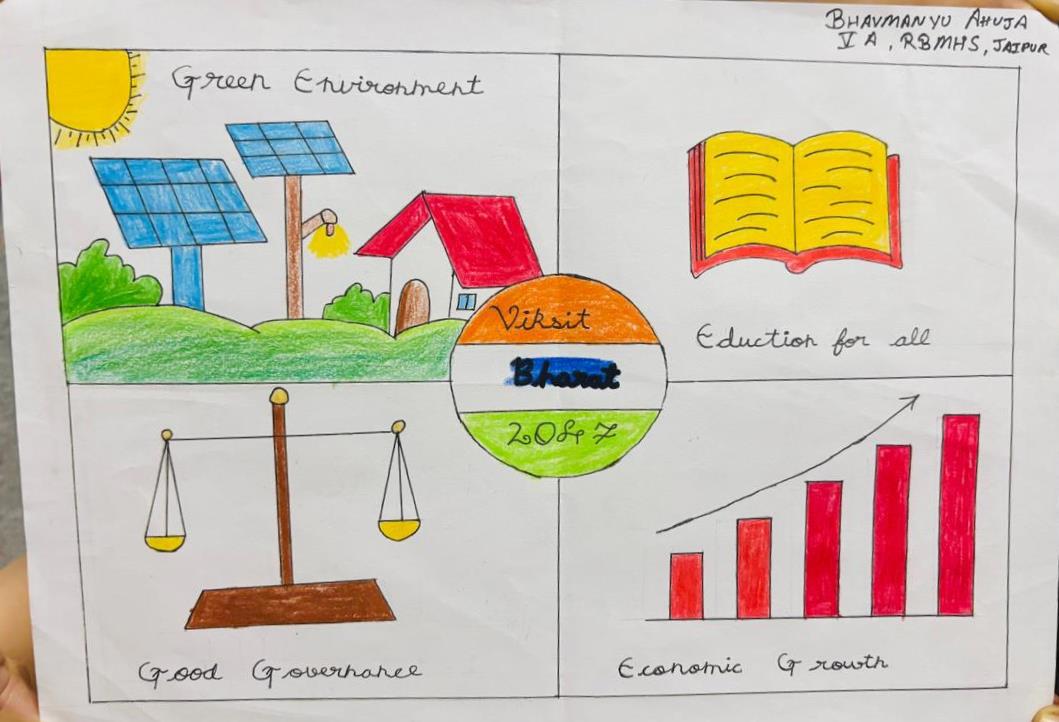 BHAVMANYU AHUJA
V A, RBMHS, JAIPUR
Green Environment
Eduction for all
Viksit
Bharat
2047
Good Governance
Economic Growth